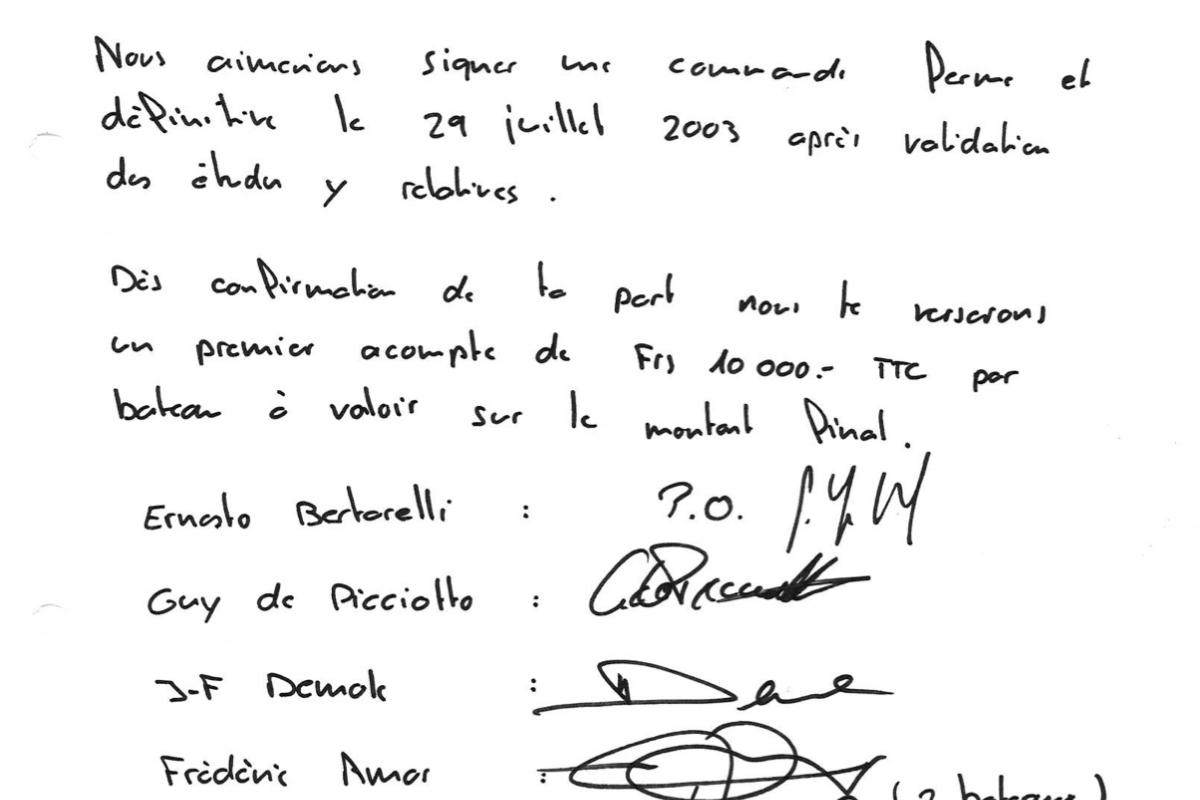 Nous aimerions signer une commande ferme et
définitive le 29 juillet 2003 après validation
des études y relatives.
Dès confirmation de ta part nous te verserons
un premier acompte de Frs 10 000.- TTC par
bateau à valoir sur le montant final.
Ernesto Bertarelli : P.O.
Guy de Picciotto :
J-F Demole :
Frédéric Amar : (2 bateaux)